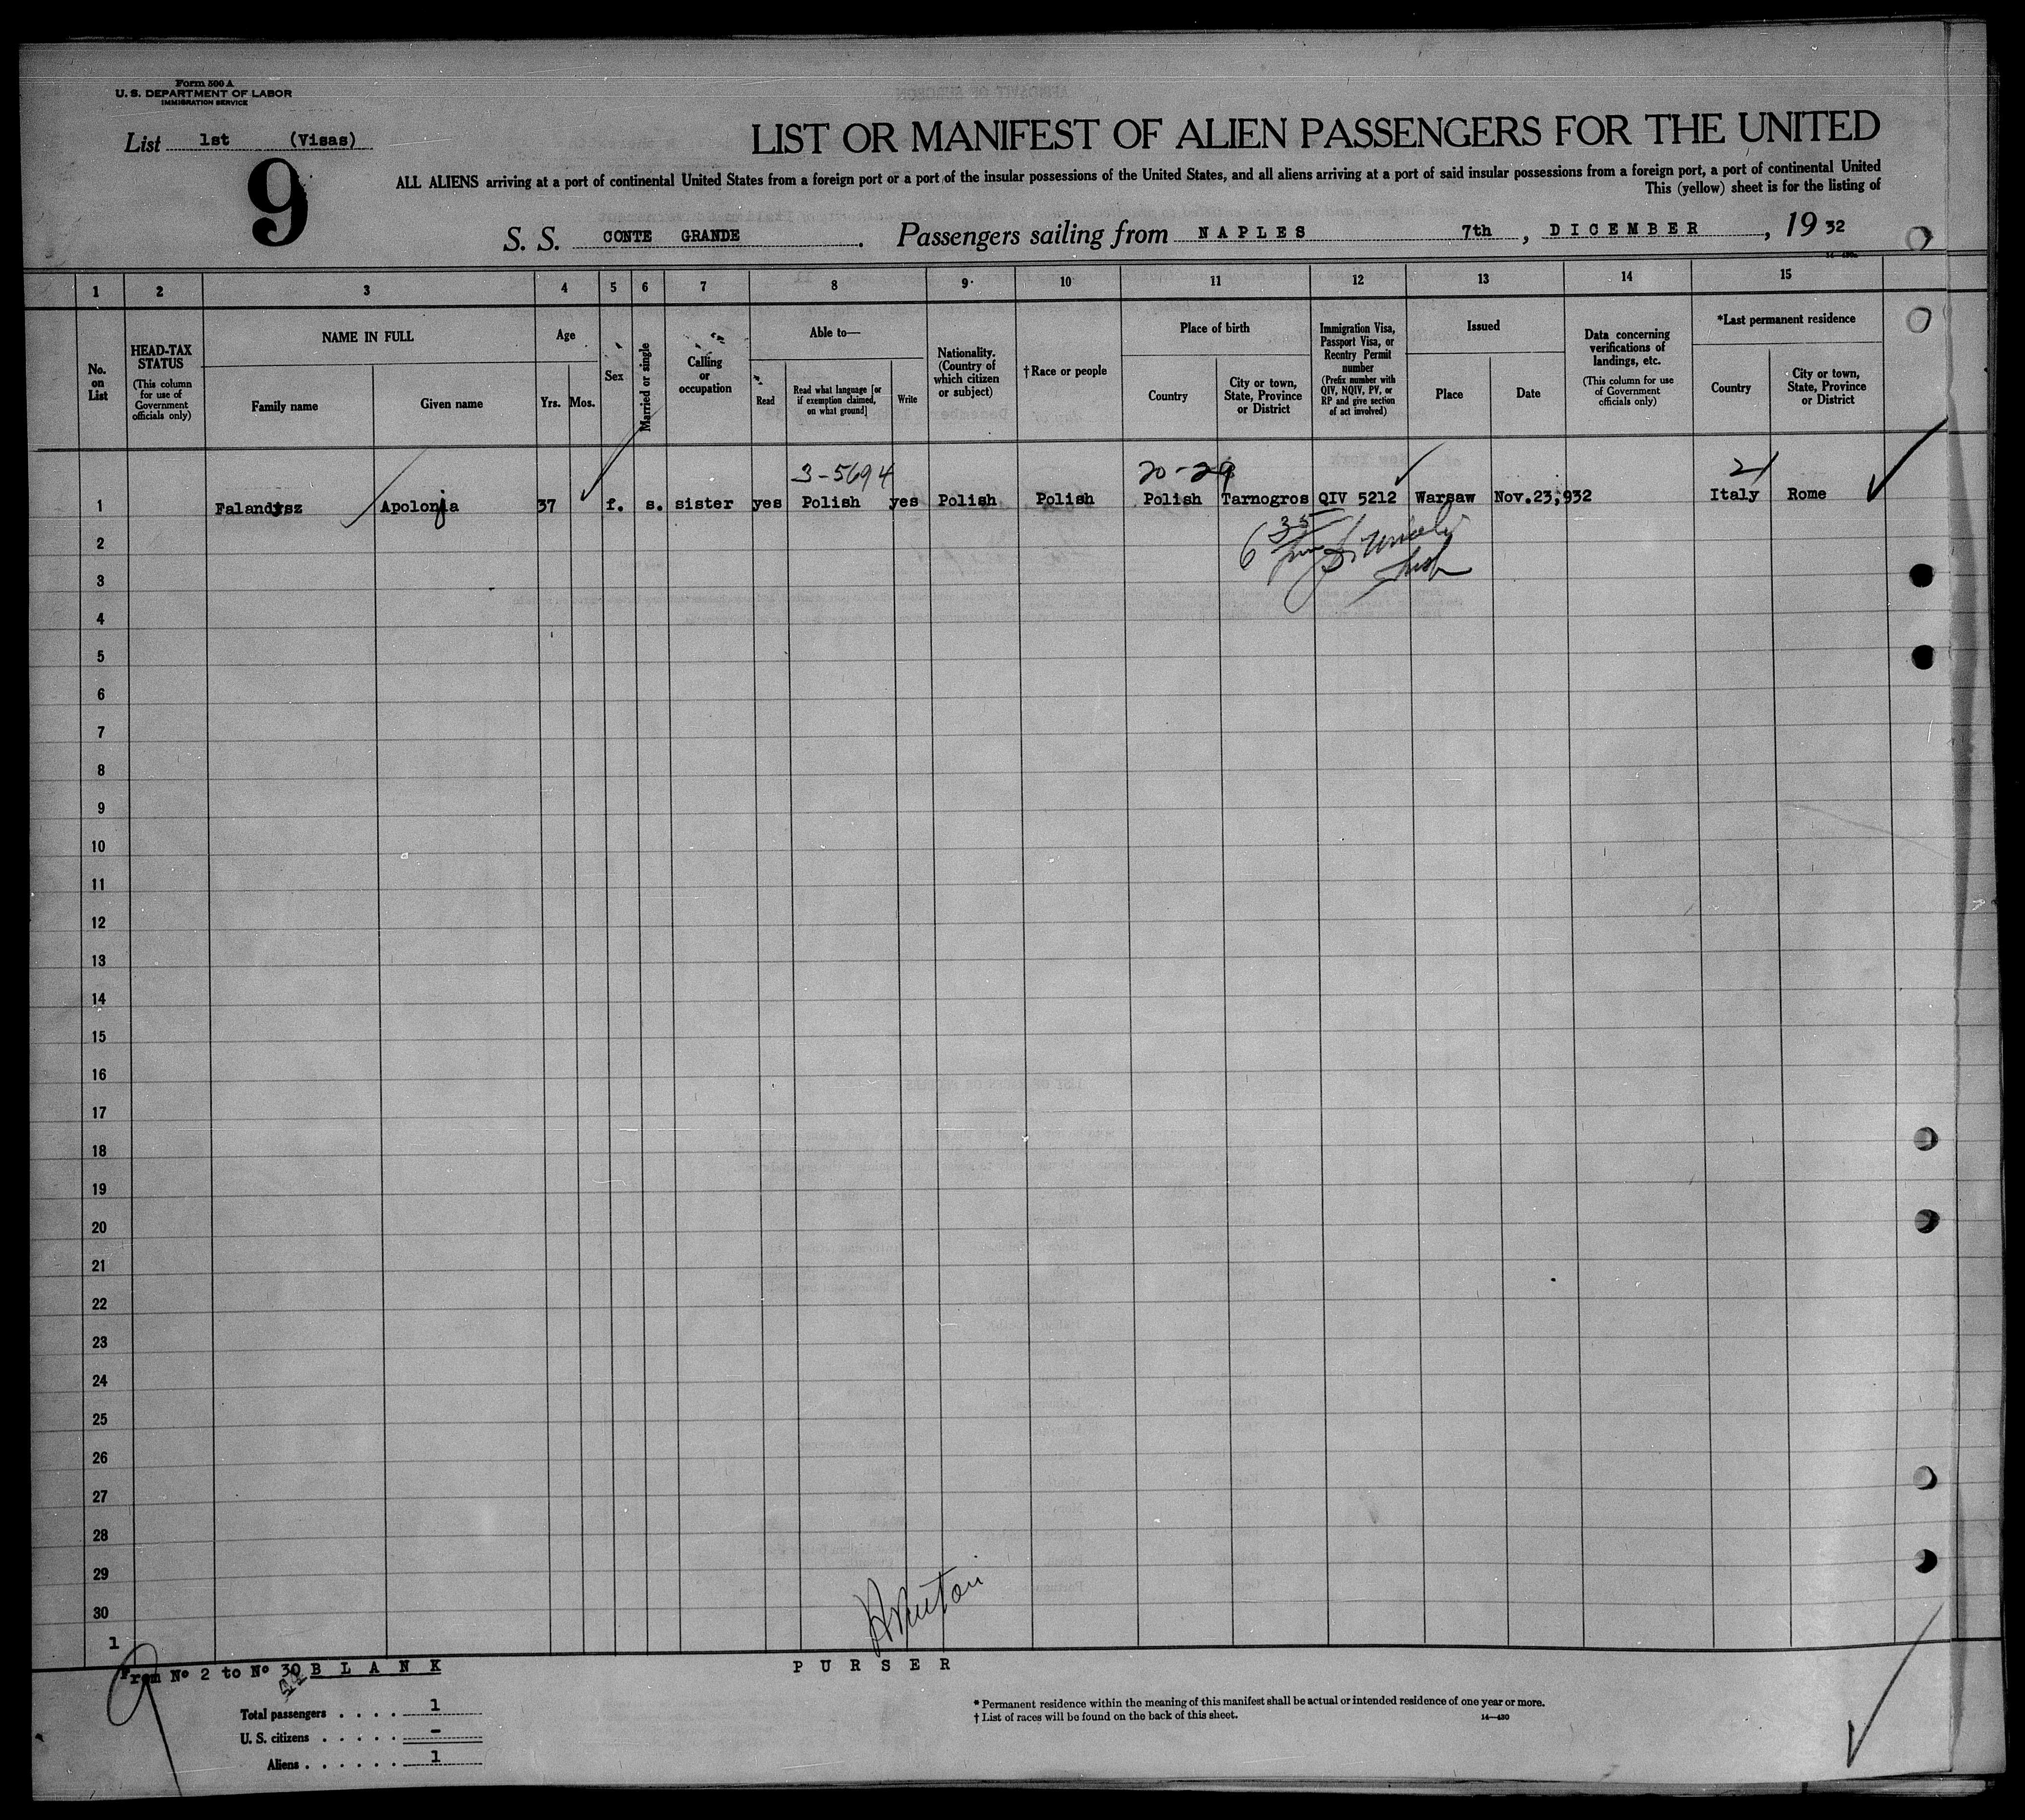 Form 500 A
U. S. DEPARTMENT OF LABOR
IMMIGRATION SERVICE
List 1st (Visas)
9
LIST OR MANIFEST OF ALIEN PASSENGERS FOR THE UNITED
ALL ALIENS arriving at a port of continental United States from a foreign port or a port of the insular possessions of the United States, and all aliens arriving at a port of said insular possessions from a foreign port, a port of continental United
This (yellow) sheet is for the listing of
S. S. CONTE GRANDE . Passengers sailing from NAPLES 7th , DICEMBER , 19 32
1 2 3 4 5 6 7 8 9 10 11 12 13 14 15
No. on List
HEAD-TAX STATUS
(This column for use of Government officials only)
NAME IN FULL
Family name
Given name
Age
Yrs.
Mos.
Sex
Married or single
Calling or occupation
Able to—
Read
Read what language [or if exemption claimed, on what ground]
Write
Nationality. (Country of which citizen or subject)
†Race or people
Place of birth
Country
City or town, State, Province or District
Immigration Visa, Passport Visa, or Reentry Permit number
(Prefix number with QIV, NQIV, PV, or RP and give section of act involved)
Issued
Place
Date
Data concerning verifications of landings, etc.
(This column for use of Government officials only)
*Last permanent residence
Country
City or town, State, Province or District
3-5694 20-29 21
1 Falandysz Apolonja 37 f. s. sister yes Polish yes Polish Polish Polish Tarnogros QIV 5212 Warsaw Nov.23,932 Italy Rome
6 35
2
3
4
5
6
7
8
9
10
11
12
13
14
15
16
17
18
19
20
21
22
23
24
25
26
27
28
29
30
1
From Nº 2 to Nº 30 BLANK
PURSER
Total passengers . . . . 1
U. S. citizens . . . . . –
Aliens . . . . . . 1
* Permanent residence within the meaning of this manifest shall be actual or intended residence of one year or more.
† List of races will be found on the back of this sheet.
14—430